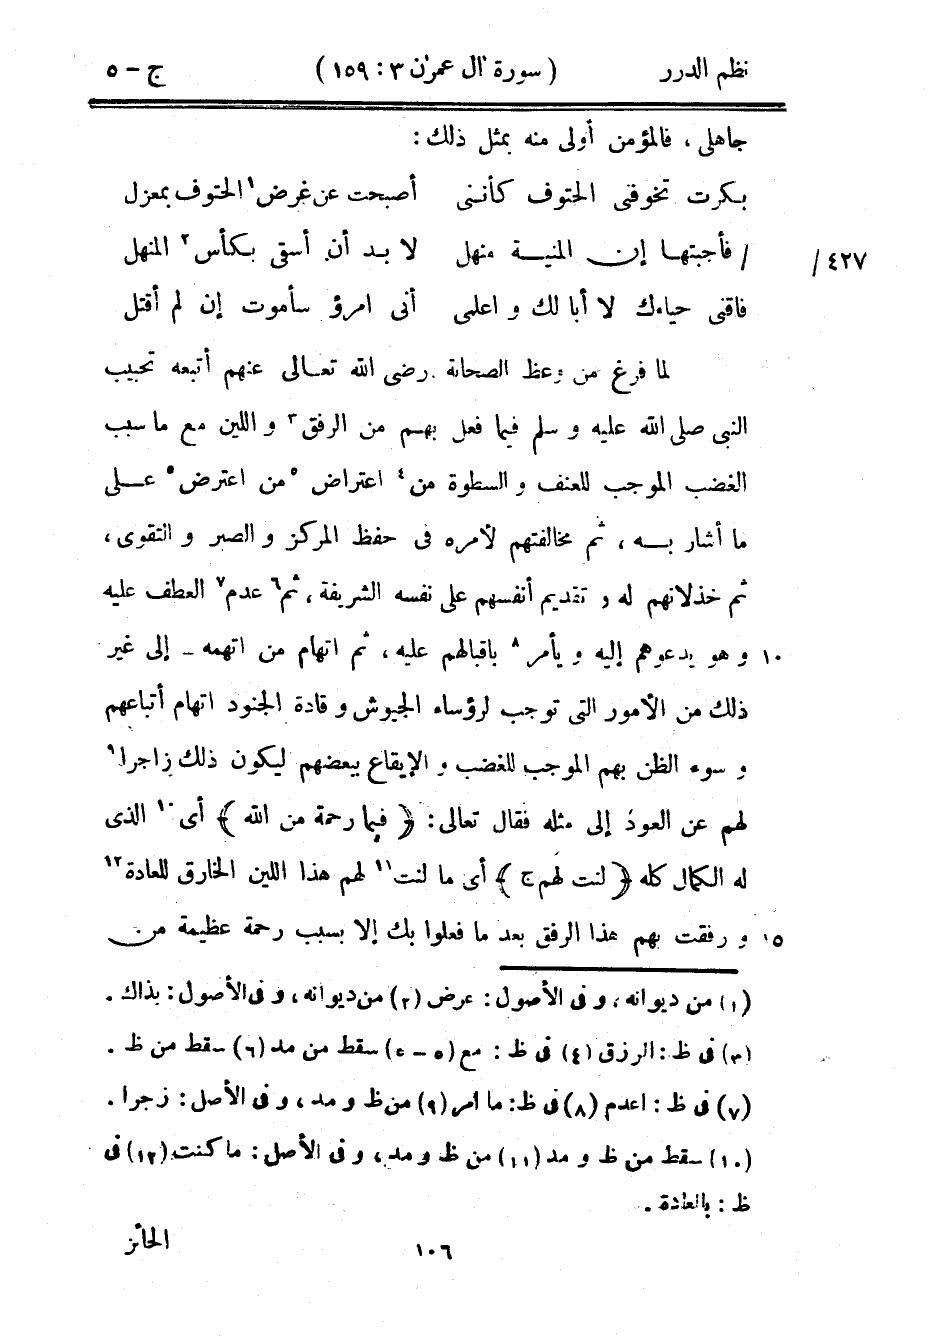 نظم الدرر ( سورة اٰل عمرٰن ٣ : ١٥٩ ) ج – ٥
جاهلى ، فالمؤمن أولى منه بمثل ذلك :
بكرت تخوفنى الحتوف كأننى أصبحت عن غرض١ الحتوف بمعزل
/ فأجبتها إن المنية منهل لا بد أن أسقى بكأس٢ المنهل ٤٢٧ /
فاقنى حياءك لا أبا لك و اعلمى أنى امرؤ سأموت إن لم أقتل
لما فرغ من وعظ الصحابة رضى الله تعالى عنهم أتبعه تحبيب
النبى صلى الله عليه و سلم فيما فعل بهم من الرفق٣ و اللين مع ما سبب
الغضب الموجب للعنف و السطوة من٤ اعتراض ٥من اعترض٥ على
ما أشار به ، ثم مخالفتهم لأمره فى حفظ المركز و الصبر و التقوى ،
ثم خذلانهم له و تقديم أنفسهم على نفسه الشريفة ، ثم٦ عدم٧ العطف عليه
١٠ و هو يدعوهم إليه و يأمر٨ باقبالهم عليه ، ثم اتهام من اتهمه – إلى غير
ذلك من الأمور التى توجب لرؤساء الجيوش و قادة الجنود اتهام أتباعهم
و سوء الظن بهم الموجب للغضب و الإيقاع ببعضهم ليكون ذلك زاجرا٩
لهم عن العود إلى مثله فقال تعالى : ﴿ فبما رحمة من الله ﴾ أى١٠ الذى
له الكمال كله ﴿ لنت لهم ج ﴾ أى ما لنت١١ لهم هذا اللين الخارق للعادة١٢
١٥ و رفقت بهم هذا الرفق بعد ما فعلوا بك إلا بسبب رحمة عظيمة من
(١) من ديوانه ، و فى الأصول : عرض (٢) من ديوانه ، و فى الأصول : بذاك .
(٣) فى ظ : الرزق (٤) فى ظ : مع (٥ – ٥) سقط من مد (٦) سقط من ظ .
(٧) فى ظ : اعدم (٨) فى ظ : ما امر (٩) من ظ و مد ، و فى الأصل : زجرا .
(١٠) سقط من ظ و مد (١١) من ظ و مد ، و فى الأصل : ما كنت (١٢) فى
ظ : بالعادة .
١٠٦ الحائز